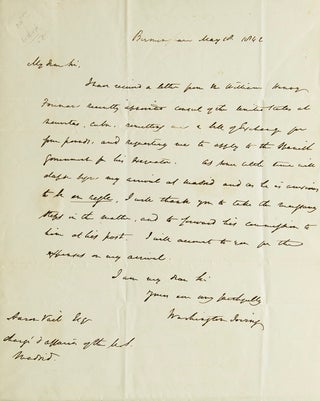 May 1842
My dear Sir,
I have received a letter from Mr William Henry
recently appointed consul of the United States at
Cuba, a bill of Exchange for
four pounds, and requesting me to apply to the Spanish
Government for his Exequatur. As some little time will
elapse before my arrival at Madrid and as he is anxious
to be en règle, I will thank you to take the necessary
steps in the matter, and to forward his commission to
him at his post. I will account to you for the
expenses on my arrival.
I am my dear Sir
Yours very faithfully
Washington Irving
Aaron Vail Esqr
chargé d'affaires of the U.S.
Madrid